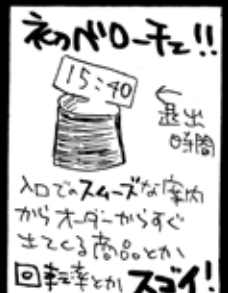 初ベローチェ!!
15:40
←
退出
時間
入口でのスムーズな案内
からオーダーからすぐ
出てくる商品とか
回転率とかスゴイ!